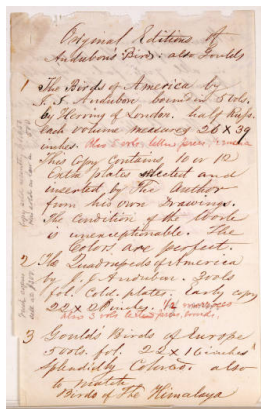 Original Editions of
Audubon's Birds also Goulds
1 The Birds of America by
J. J. Audubon bound in 5 Vols.
by Herring of London. half Russ.
each volume measures 26 X 39
inches. Also 5 vols. letter press,
This Copy contains 10 or 12
Extra plates selected and
inserted by The Author
from his own Drawings.
The Condition of the Work
is unexceptionable. The
Colors are perfect.
2 The Quadrupeds of America
by J. J. Audubon. 3 vols
fol. Cold. plates. Early copy
22 X 28 inches. 1/2 morocco
also 3 vols letter press, bound.
3 Gould's Birds of Europe
5 vols. fol. 22 X 16 inches
Splendidly Colored. also
to match
Birds of The Himalaya